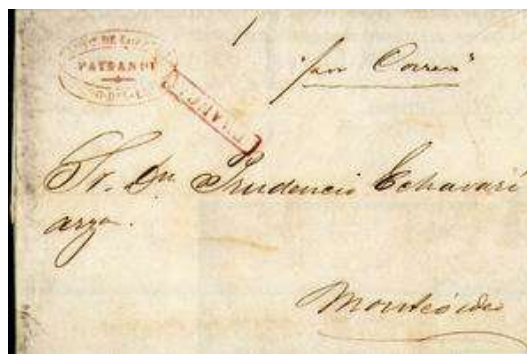 PAYSANDÚ
"por Correo"
Sr. Dn Prudencio Echavarri
arza.
Montevideo